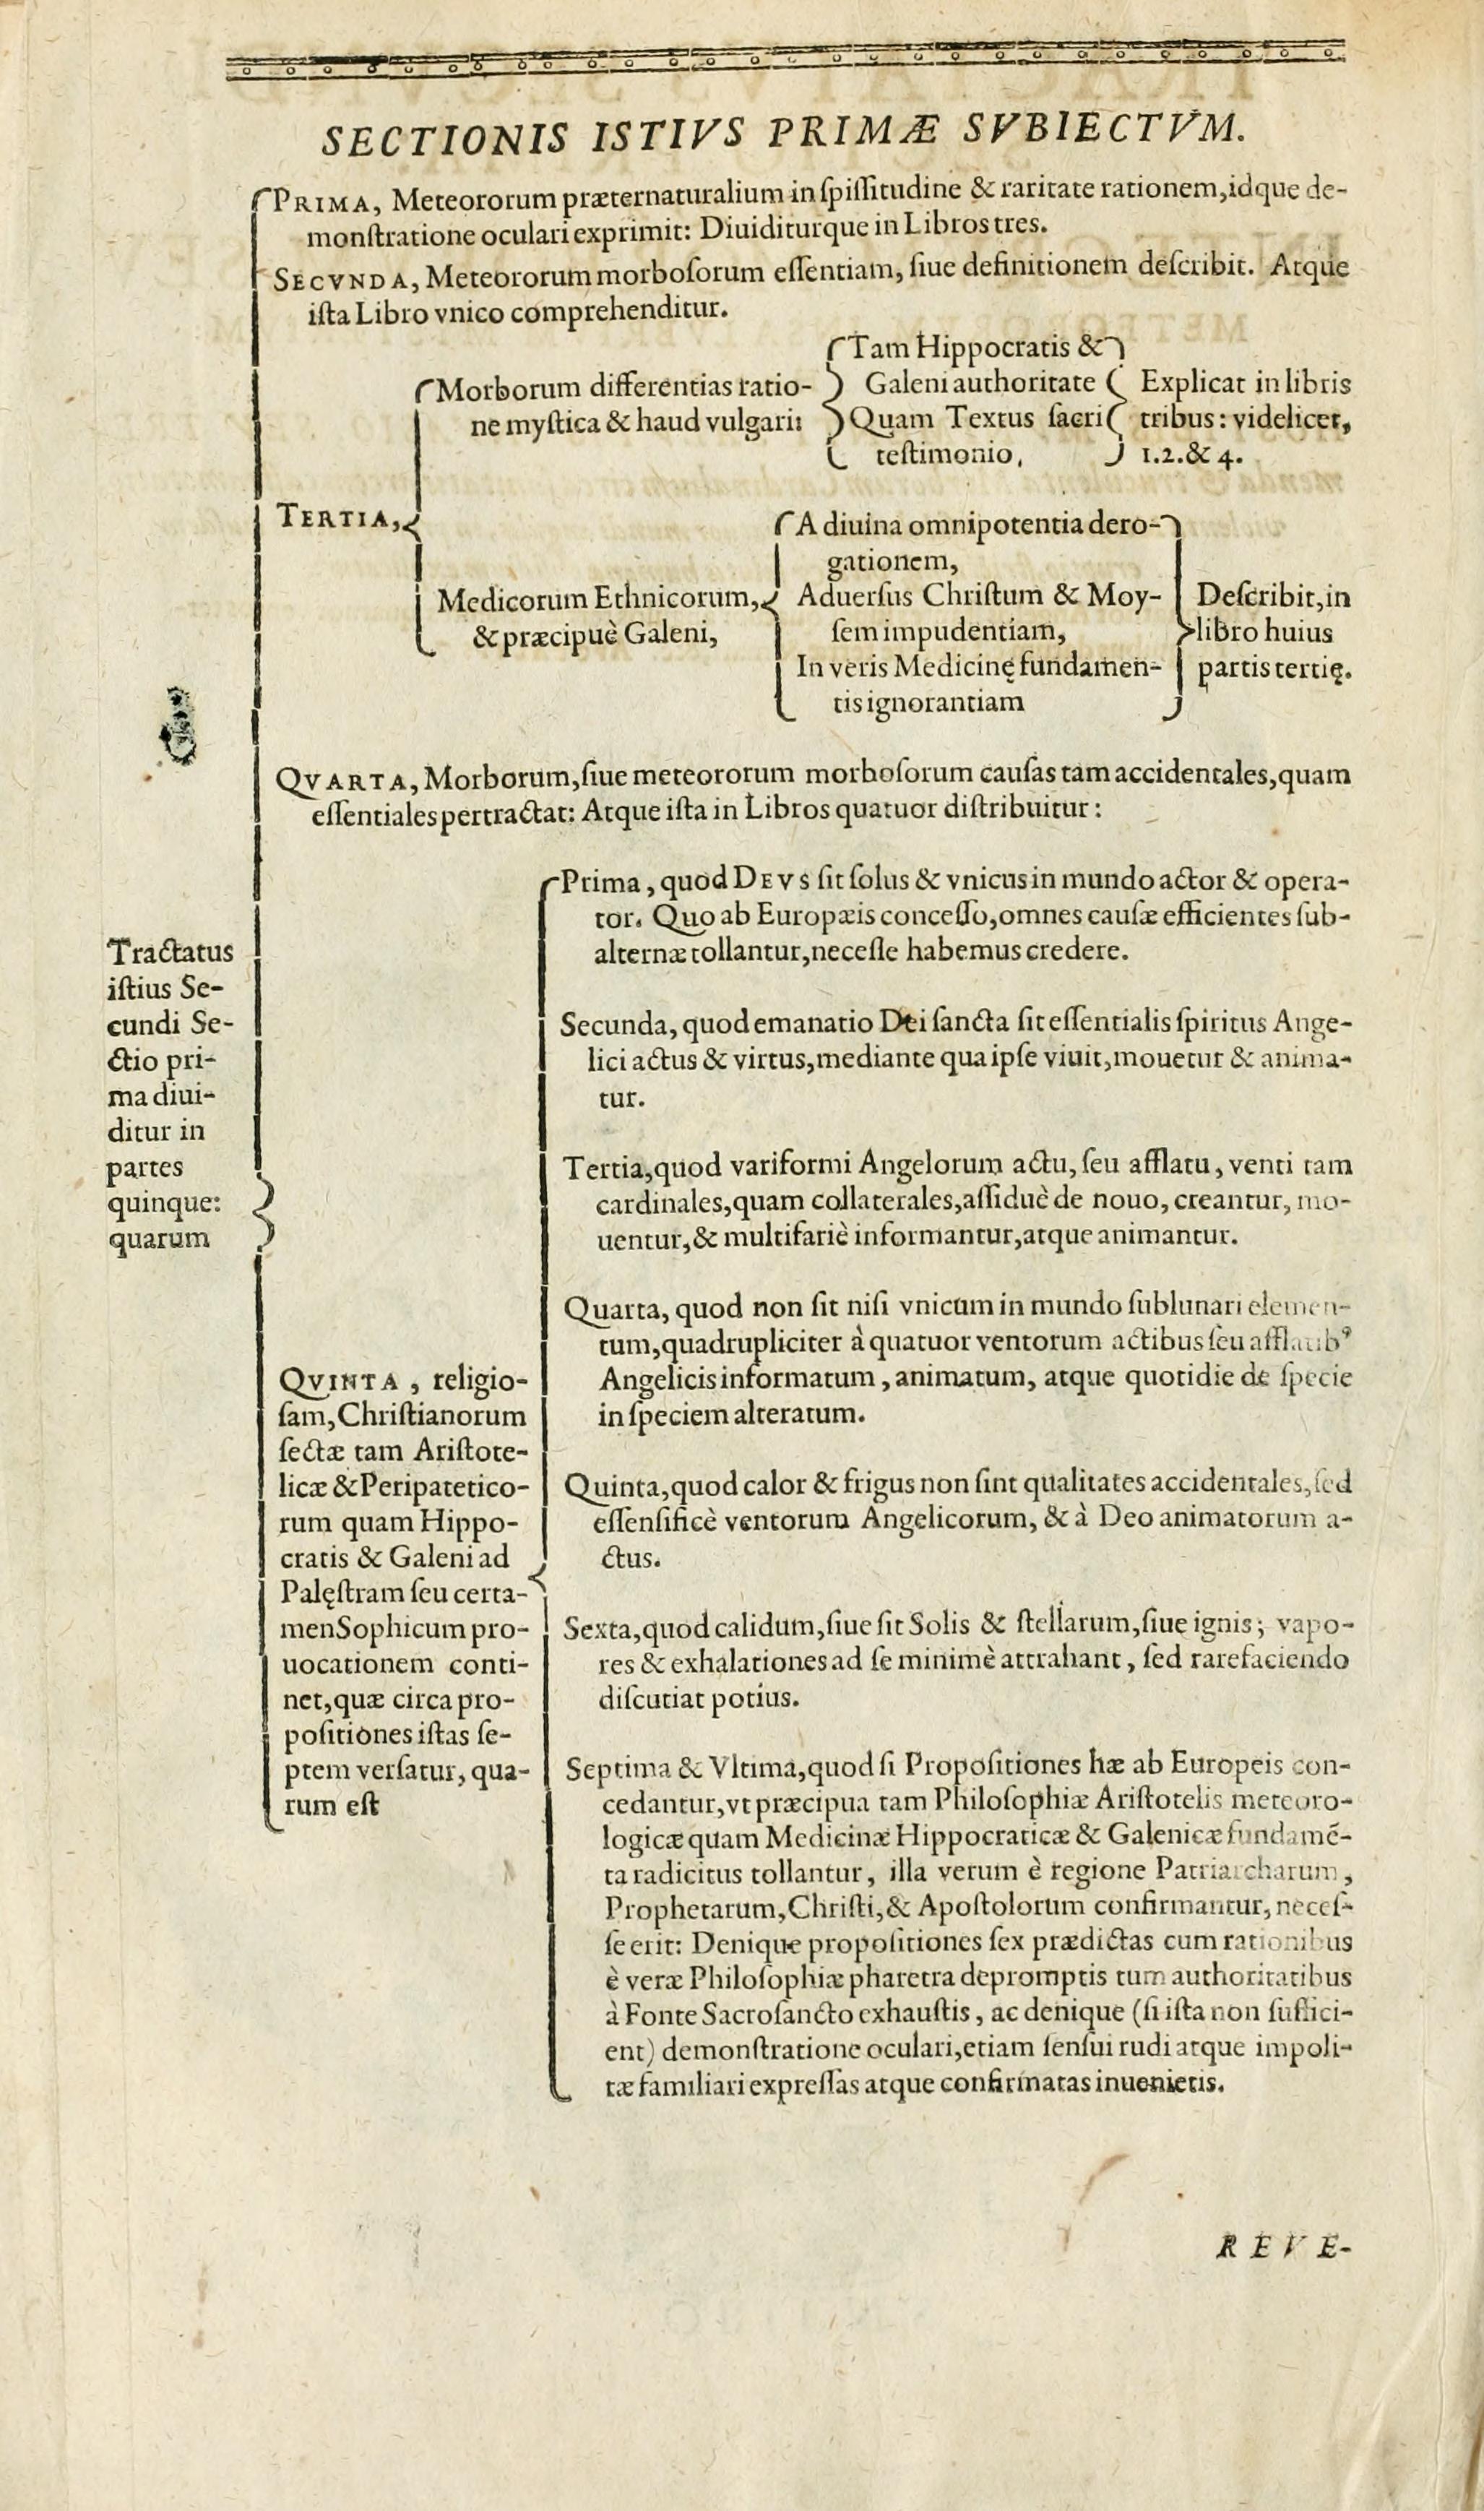 SECTIONIS ISTIVS PRIMÆ SVBIECTVM.
PRIMA, Meteororum præternaturalium in ſpiſſitudine & raritate rationem, idque de-
monſtratione oculari exprimit: Diuiditurque in Libros tres.
SECVNDA, Meteororum morboſorum eſſentiam, ſiue definitionem deſcribit. Atque
iſta Libro vnico comprehenditur.
TERTIA,
Morborum differentias ratio-
ne myſtica & haud vulgari:
Tam Hippocratis &
Galeni authoritate
Quam Textus ſacri
teſtimonio,
Explicat in libris
tribus: videlicet,
1.2.& 4.
Medicorum Ethnicorum,
& præcipuè Galeni,
A diuina omnipotentia dero-
gationem,
Aduerſus Chriſtum & Moy-
ſem impudentiam,
In veris Medicinę fundamen-
tis ignorantiam
Deſcribit, in
libro huius
partis tertię.
QVARTA, Morborum, ſiue meteororum morboſorum cauſas tam accidentales, quam
eſſentiales pertractat: Atque iſta in Libros quatuor diſtribuitur:
Tractatus
iſtius Se-
cundi Se-
ctio pri-
ma diui-
ditur in
partes
quinque:
quarum
QVINTA, religio-
ſam, Chriſtianorum
ſectæ tam Ariſtote-
licæ & Peripatetico-
rum quam Hippo-
cratis & Galeni ad
Palęſtram ſeu certa-
men Sophicum pro-
uocationem conti-
net, quæ circa pro-
poſitiones iſtas ſe-
ptem verſatur, qua-
rum eſt
Prima, quod DEVS ſit ſolus & vnicus in mundo actor & opera-
tor. Quo ab Europæis conceſſo, omnes cauſæ efficientes ſub-
alternæ tollantur, neceſſe habemus credere.
Secunda, quod emanatio Dei ſancta ſit eſſentialis ſpiritus Ange-
lici actus & virtus, mediante qua ipſe viuit, mouetur & anima-
tur.
Tertia, quod variformi Angelorum actu, ſeu afflatu, venti tam
cardinales, quam collaterales, aſſiduè de nouo, creantur, mo-
uentur, & multifariè informantur, atque animantur.
Quarta, quod non ſit niſi vnicum in mundo ſublunari elemen-
tum, quadrupliciter à quatuor ventorum actibus ſeu afflatibꝰ
Angelicis informatum, animatum, atque quotidie de ſpecie
in ſpeciem alteratum.
Quinta, quod calor & frigus non ſint qualitates accidentales, ſed
eſſenſificè ventorum Angelicorum, & à Deo animatorum a-
ctus.
Sexta, quod calidum, ſiue ſit Solis & ſtellarum, ſiue ignis; vapo-
res & exhalationes ad ſe minimè attrahant, ſed rarefaciendo
diſcutiat potius.
Septima & Vltima, quod ſi Propoſitiones hæ ab Europeis con-
cedantur, vt præcipua tam Philoſophiæ Ariſtotelis meteoro-
logicæ quam Medicinæ Hippocraticæ & Galenicæ fundamē-
ta radicitus tollantur, illa verum è regione Patriarcharum,
Prophetarum, Chriſti, & Apoſtolorum confirmantur, neceſ-
ſe erit: Denique propoſitiones ſex prædictas cum rationibus
è veræ Philoſophiæ pharetra depromptis tum authoritatibus
à Fonte Sacroſancto exhauſtis, ac denique (ſi iſta non ſuffici-
ent) demonſtratione oculari, etiam ſenſui rudi atque impoli-
tæ familiari expreſſas atque confirmatas inuenietis.
REVE-